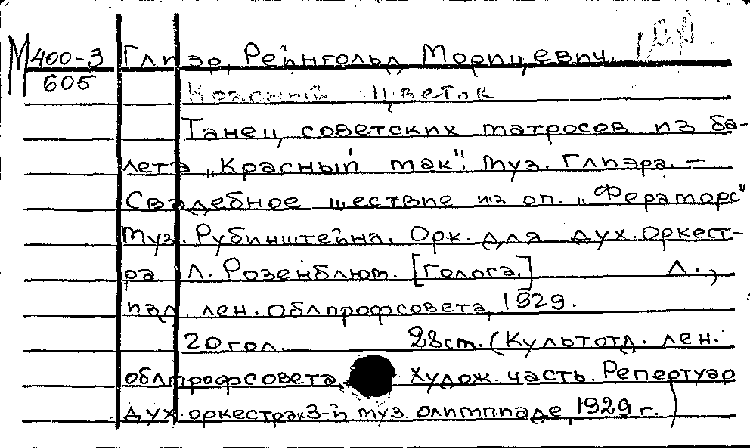 М400-3 Глиэр, Рейнгольд Морицевич.
605
Красный цветок
Танец советских матросов из ба-
лета „Красный мак". Муз. Глиэра. —
Свадебное шествие из оп. „Фераморс"
Муз. Рубинштейна. Орк. для дух. оркест-
ра Л. Розенблюм. [Голоса.] Л.,
изд. лен. облпрофсовета, 1929.
20 гол. 28 cm. (Культотд. лен.
облпрофсовета. Худож. часть. Репертуар
дух. оркестра к 3-й муз. олимпиаде, 1929 г.)